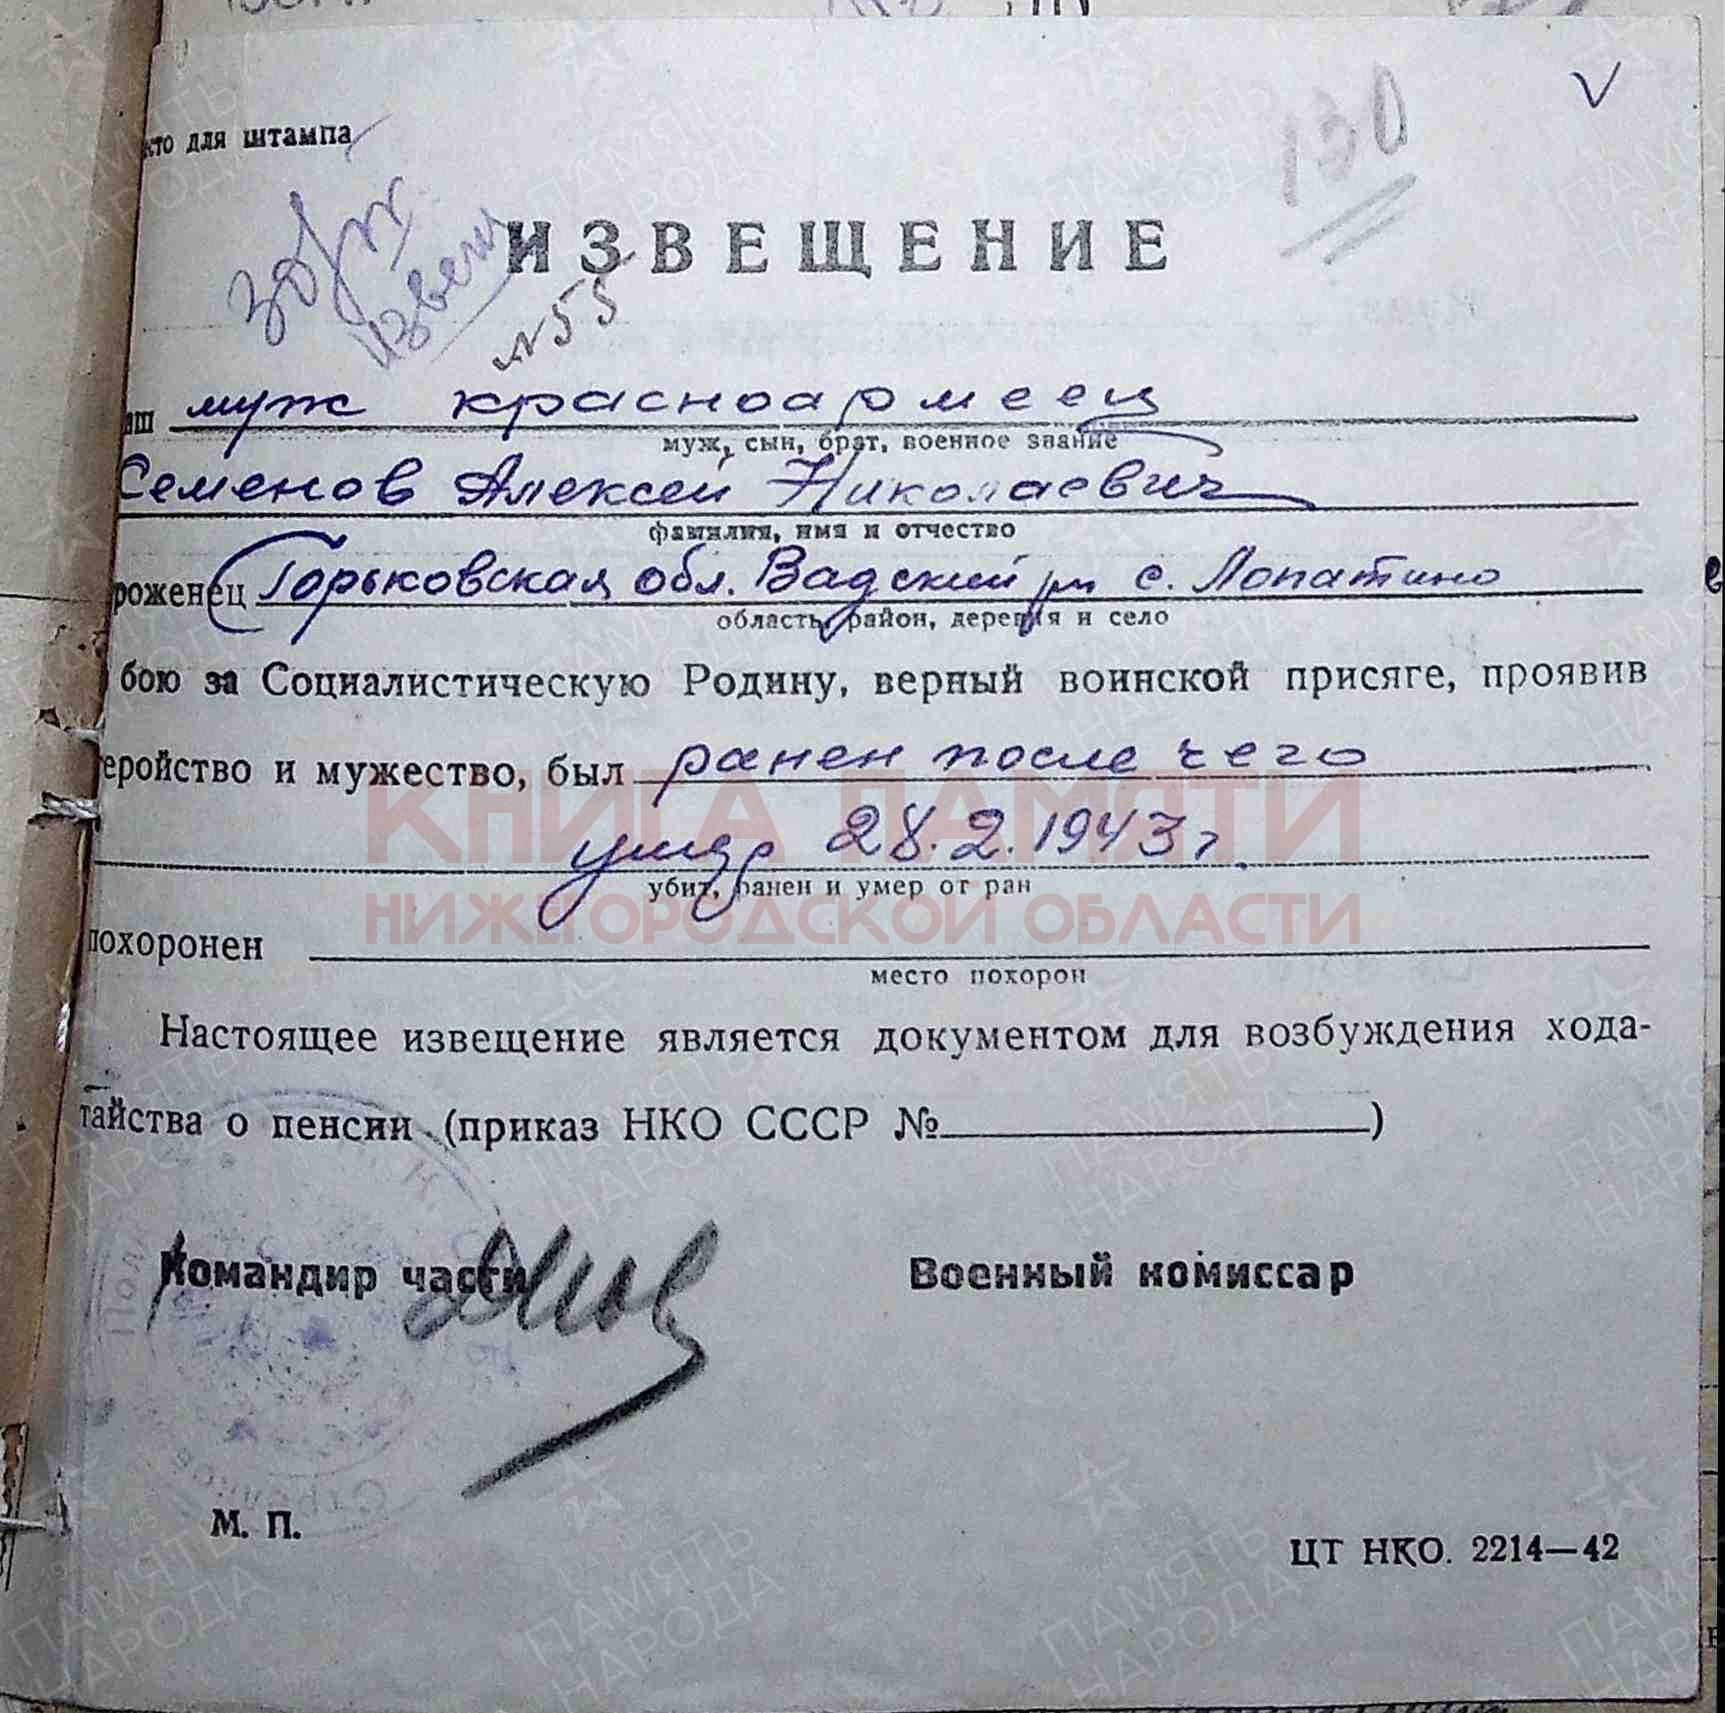 сто для штампа
извещ
130
ИЗВЕЩЕНИЕ
№55
аш муж красноармеец
муж, сын, брат, военное звание
Семенов Алексей Николаевич
фамилия, имя и отчество
роженец Горьковская обл. Вадский рн с. Лопатино
область, район, деревня и село
бою за Социалистическую Родину, верный воинской присяге, проявив
геройство и мужество, был ранен после чего
умер 28.2.1943 г.
убит, ранен и умер от ран
похоронен
место похорон
Настоящее извещение является документом для возбуждения хода-
тайства о пенсии (приказ НКО СССР № )
Командир части
Военный комиссар
М. П.
ЦТ НКО. 2214—42
КНИГА ПАМЯТИ
НИЖЕГОРОДСКОЙ ОБЛАСТИ
ПАМЯТЬ
НАРОДА